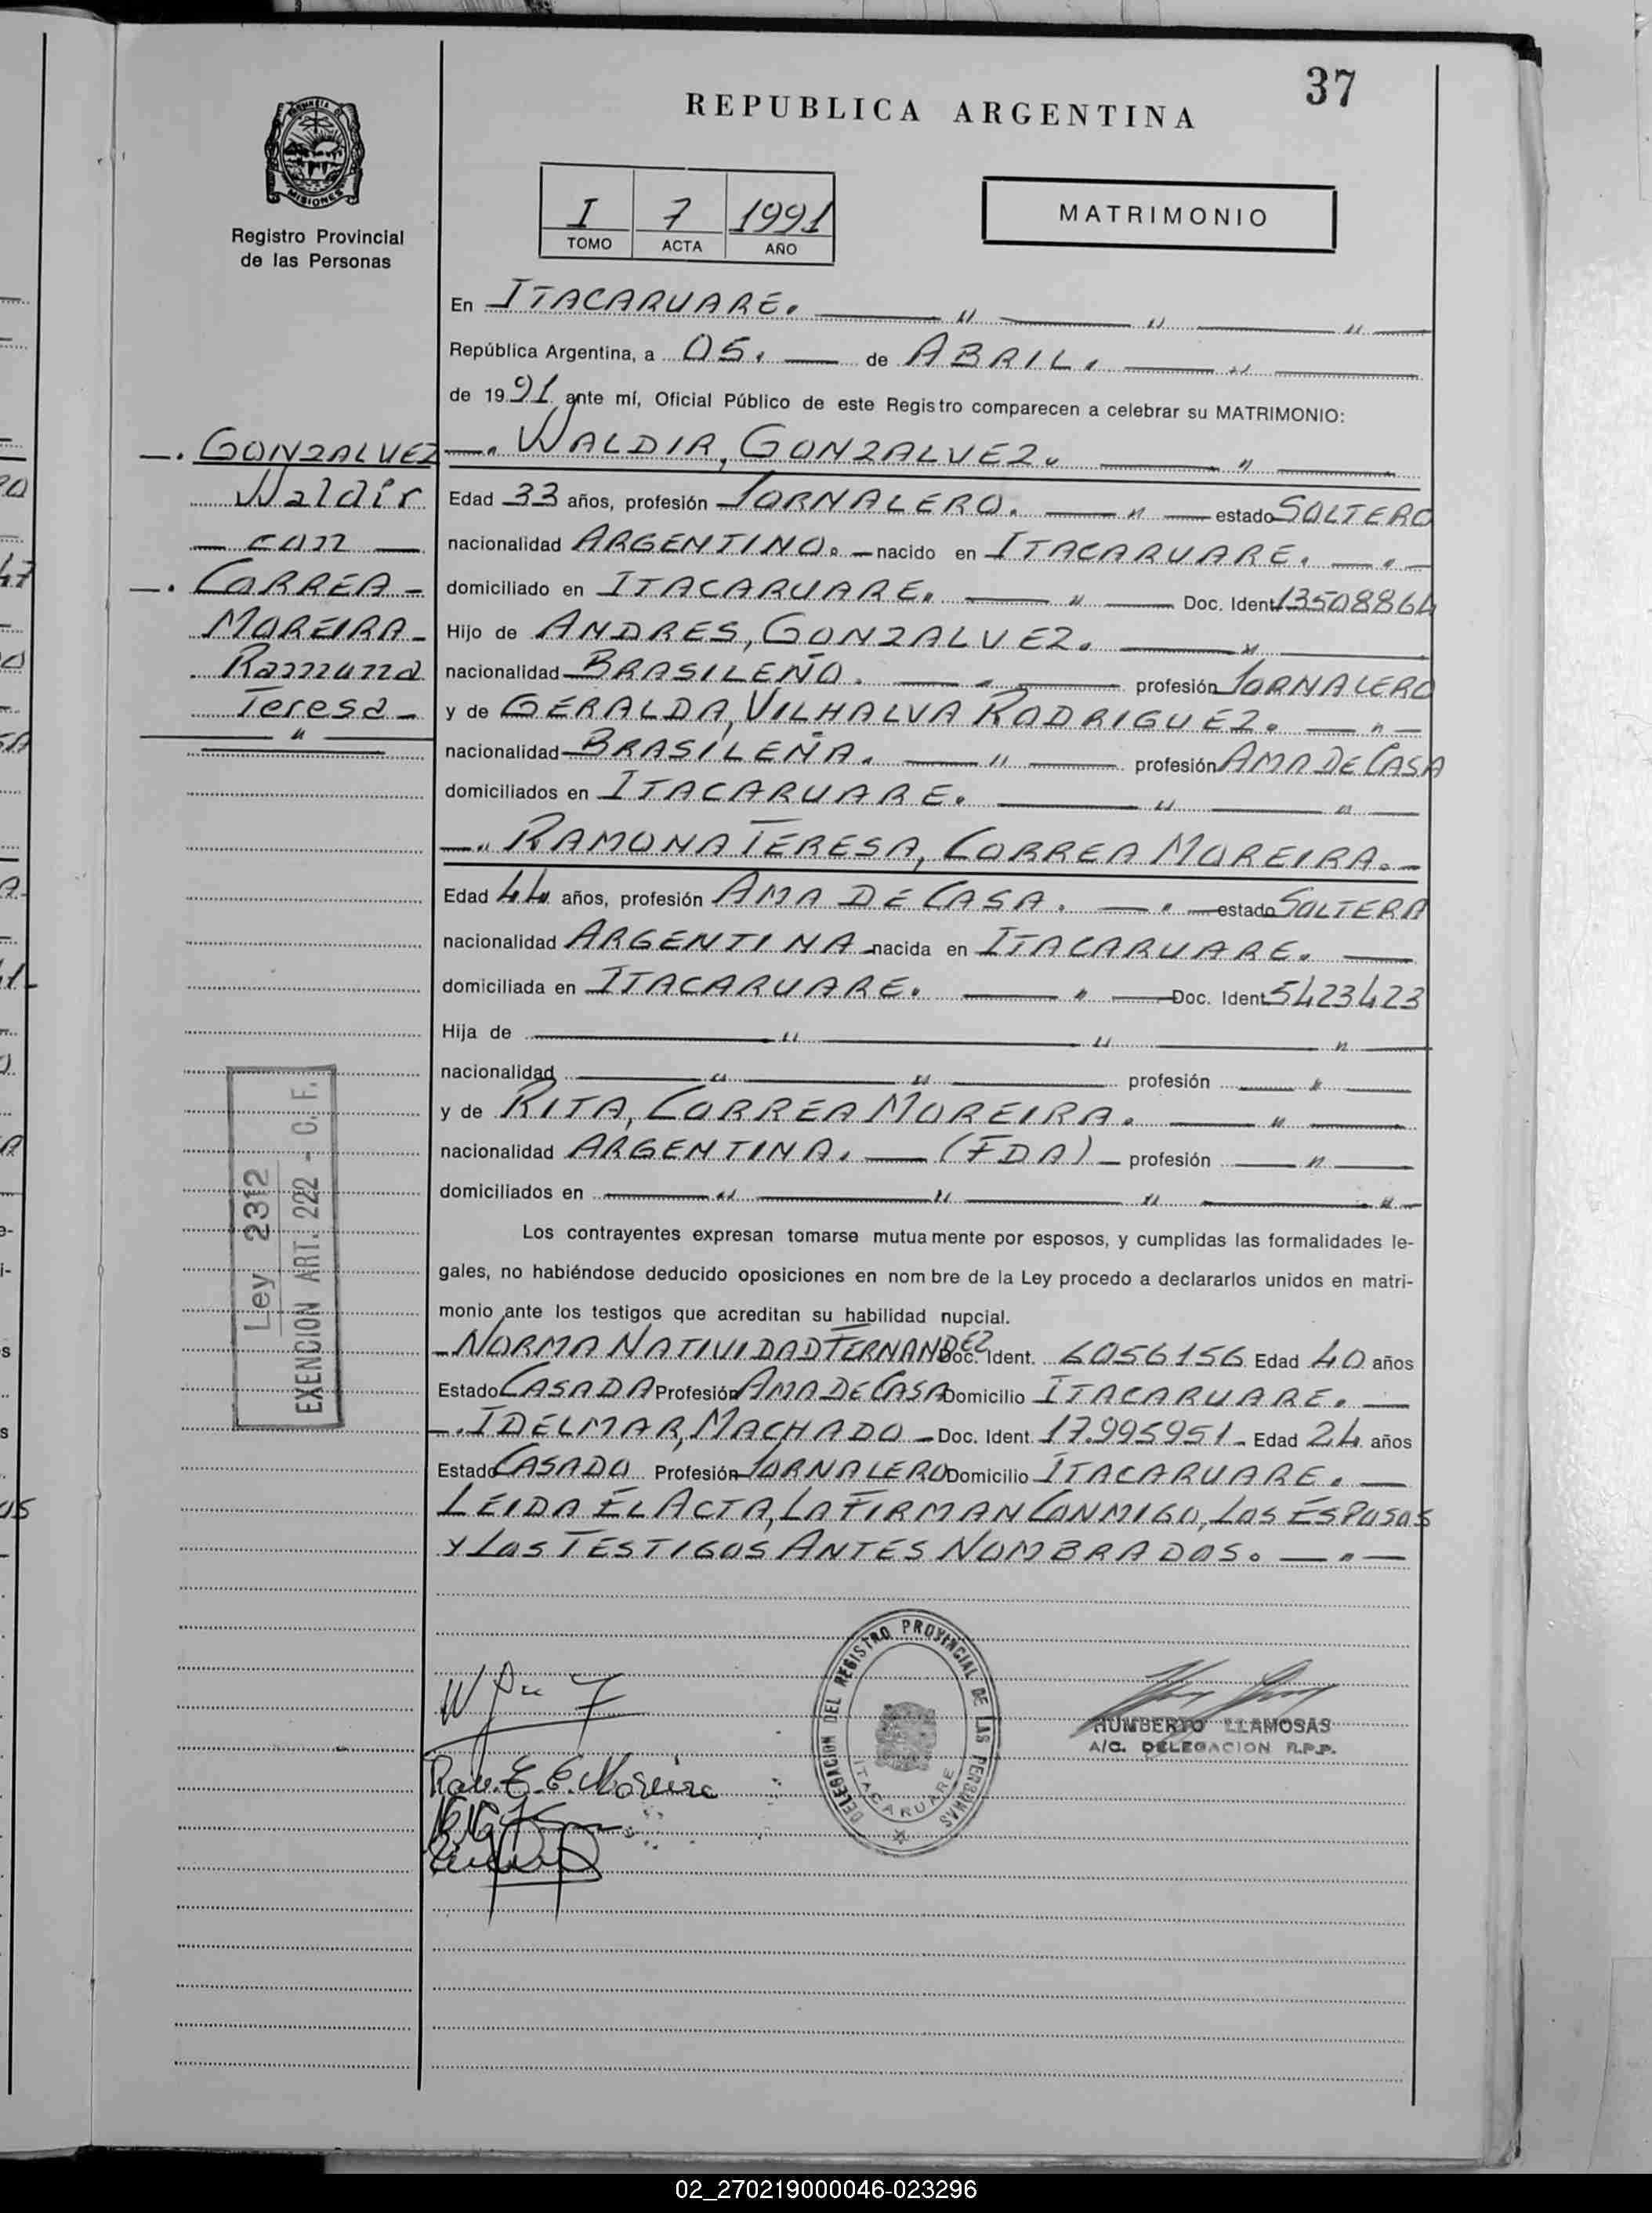 37
REPUBLICA ARGENTINA
PROVINCIA DE
MISIONES
Registro Provincial
de las Personas
I 7 1991
TOMO ACTA AÑO
MATRIMONIO
En ITACARUARE.
República Argentina, a 05. de ABRIL.
de 1991 ante mí, Oficial Público de este Registro comparecen a celebrar su MATRIMONIO:
GONZALVEZ
Waldir
con
CORREA
MOREIRA
Ramona
Teresa
WALDIR, GONZALVEZ.
Edad 33 años, profesión JORNALERO. estado SOLTERO
nacionalidad ARGENTINO. nacido en ITACARUARE.
domiciliado en ITACARUARE. Doc. Ident. 13508864
Hijo de ANDRES, GONZALVEZ.
nacionalidad BRASILEÑO. profesión JORNALERO
y de GERALDA, VILHALVA RODRIGUEZ.
nacionalidad BRASILEÑA. profesión AMA DE CASA
domiciliados en ITACARUARE.
RAMONA TERESA, CORREA MOREIRA.
Edad 44 años, profesión AMA DE CASA. estado SOLTERA
nacionalidad ARGENTINA nacida en ITACARUARE.
domiciliada en ITACARUARE. Doc. Ident. 5423423
Hija de
nacionalidad profesión
y de RITA, CORREA MOREIRA.
nacionalidad ARGENTINA. (FDA) profesión
domiciliados en
Los contrayentes expresan tomarse mutuamente por esposos, y cumplidas las formalidades le-
gales, no habiéndose deducido oposiciones en nombre de la Ley procedo a declararlos unidos en matri-
monio ante los testigos que acreditan su habilidad nupcial.
NORMA NATIVIDAD FERNANDEZ Doc. Ident. 6056156 Edad 40 años
Estado CASADA Profesión AMA DE CASA Domicilio ITACARUARE.
IDELMAR, MACHADO Doc. Ident. 17.995951 Edad 24 años
Estado CASADO Profesión JORNALERO Domicilio ITACARUARE.
LEIDA EL ACTA, LA FIRMAN CONMIGO, LOS ESPOSOS
Y LOS TESTIGOS ANTES NOMBRADOS.
Ley 2312
EXENCION ART. 222 - C. F.
DELEGACION DEL REGISTRO PROVINCIAL DE LAS PERSONAS
ITACARUARE
HUMBERTO LLAMOSAS
A/C. DELEGACION R.P.P.
Moreira
02_270219000046-023296